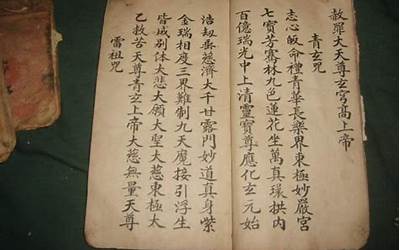 赦罪大天尊玄宮高上帝
青玄咒
志心皈命禮青華長樂界東極妙嚴宮
七寶芳騫林九色蓮花坐萬真環拱內
百億瑞光中上清靈寶尊應化玄元始
浩刼垂慈濟大千甘露門妙道真身紫
金瑞相度三界難制九天魔接引浮生
皆体大悲大願大聖大慈東極太
乙救苦天尊青玄上帝大慈無量天尊
雷祖咒